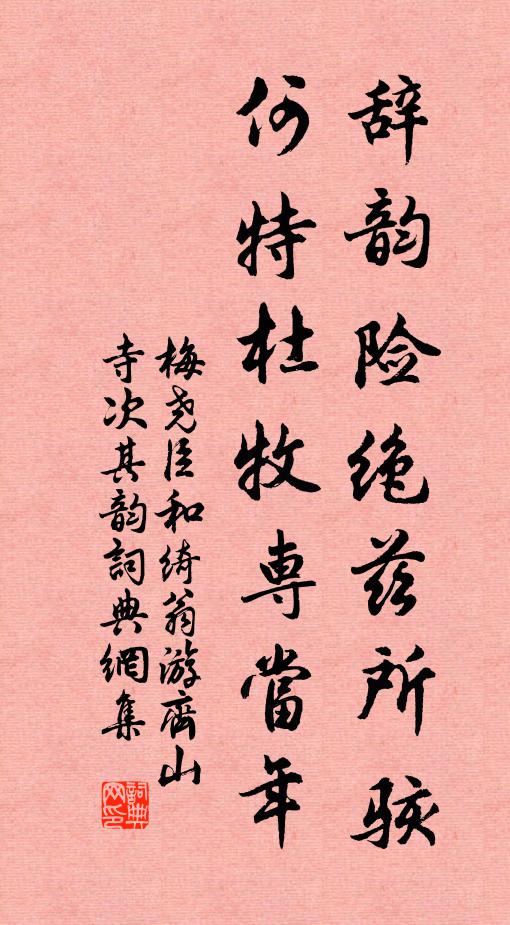 辞韵险绝兹所骇
何特杜牧専當年
梅尧臣和绮翁游齊山
寺次其韵詞典網集
詞典网印